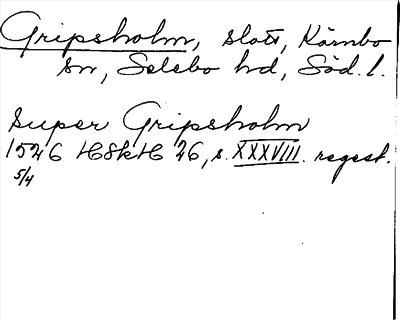 Gripsholm, slott, Kärnbo
sn, Selebo hd, Söd. l.
super Gripsholm
1526 HSkH 26, s. XXXVIII. regest.
5/4